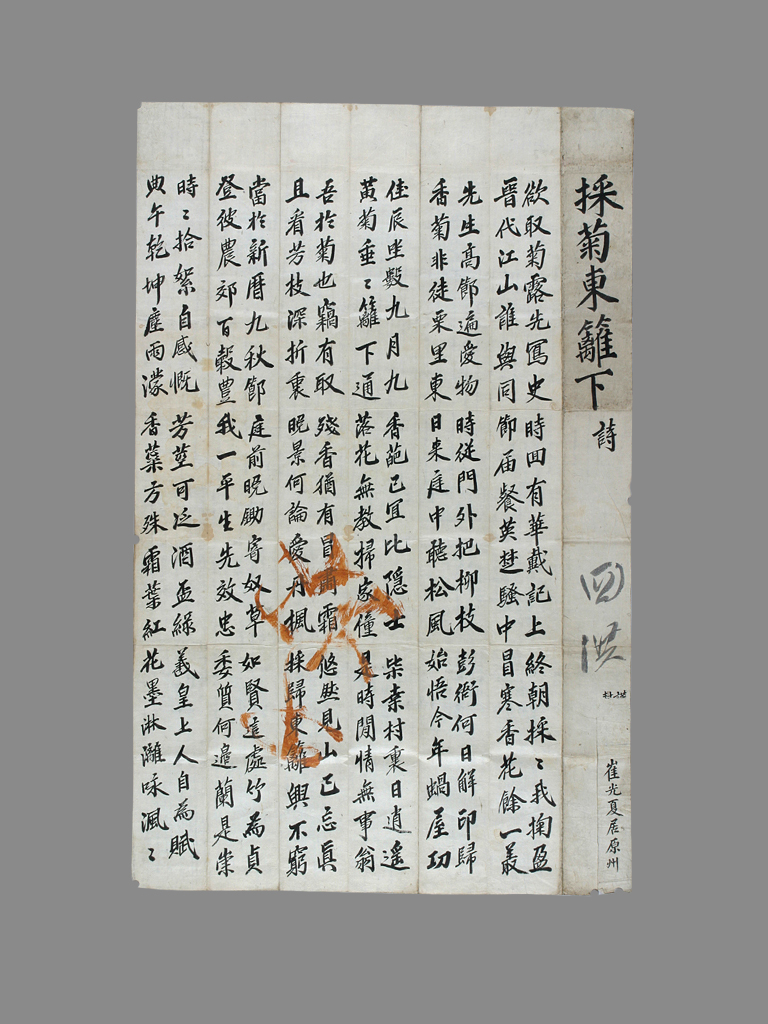 採菊東籬下 詩
崔光夏居原州
欲取菊露先寫史 時回有華戴記上 終朝採〻我掬盈
晉代江山誰與同 節届餐英楚騷中 冒寒香花餘一叢
先生高節遍愛物 時從門外把柳枝 彭衙何日解印歸
香菊非徒栗里東 日來庭中聽松風 始悟今年蝸屋功
佳辰坐數九月九 香葩已宜比隱士 柴桑村裏日逍遙
黃菊垂〻籬下通 落花無教掃家僮 是時閒情無事翁
吾於菊也竊有取 殘香猶有冒霜 悠然見山已忘眞
且看芳枝深折裏 晚景何論愛丹楓 採歸東籬興不窮
當於新曆九秋節 庭前晚鋤寄奴草 如賢這處竹為貞
登彼農郊百穀豊 我一平生先效忠 委質何邊蘭是崇
時〻拾絮自感慨 芳莖可泛酒盃綠 羲皇上人自為賦
典午乾坤塵雨濛 香蘂方殊霜葉紅 花墨淋灕咏渢〻